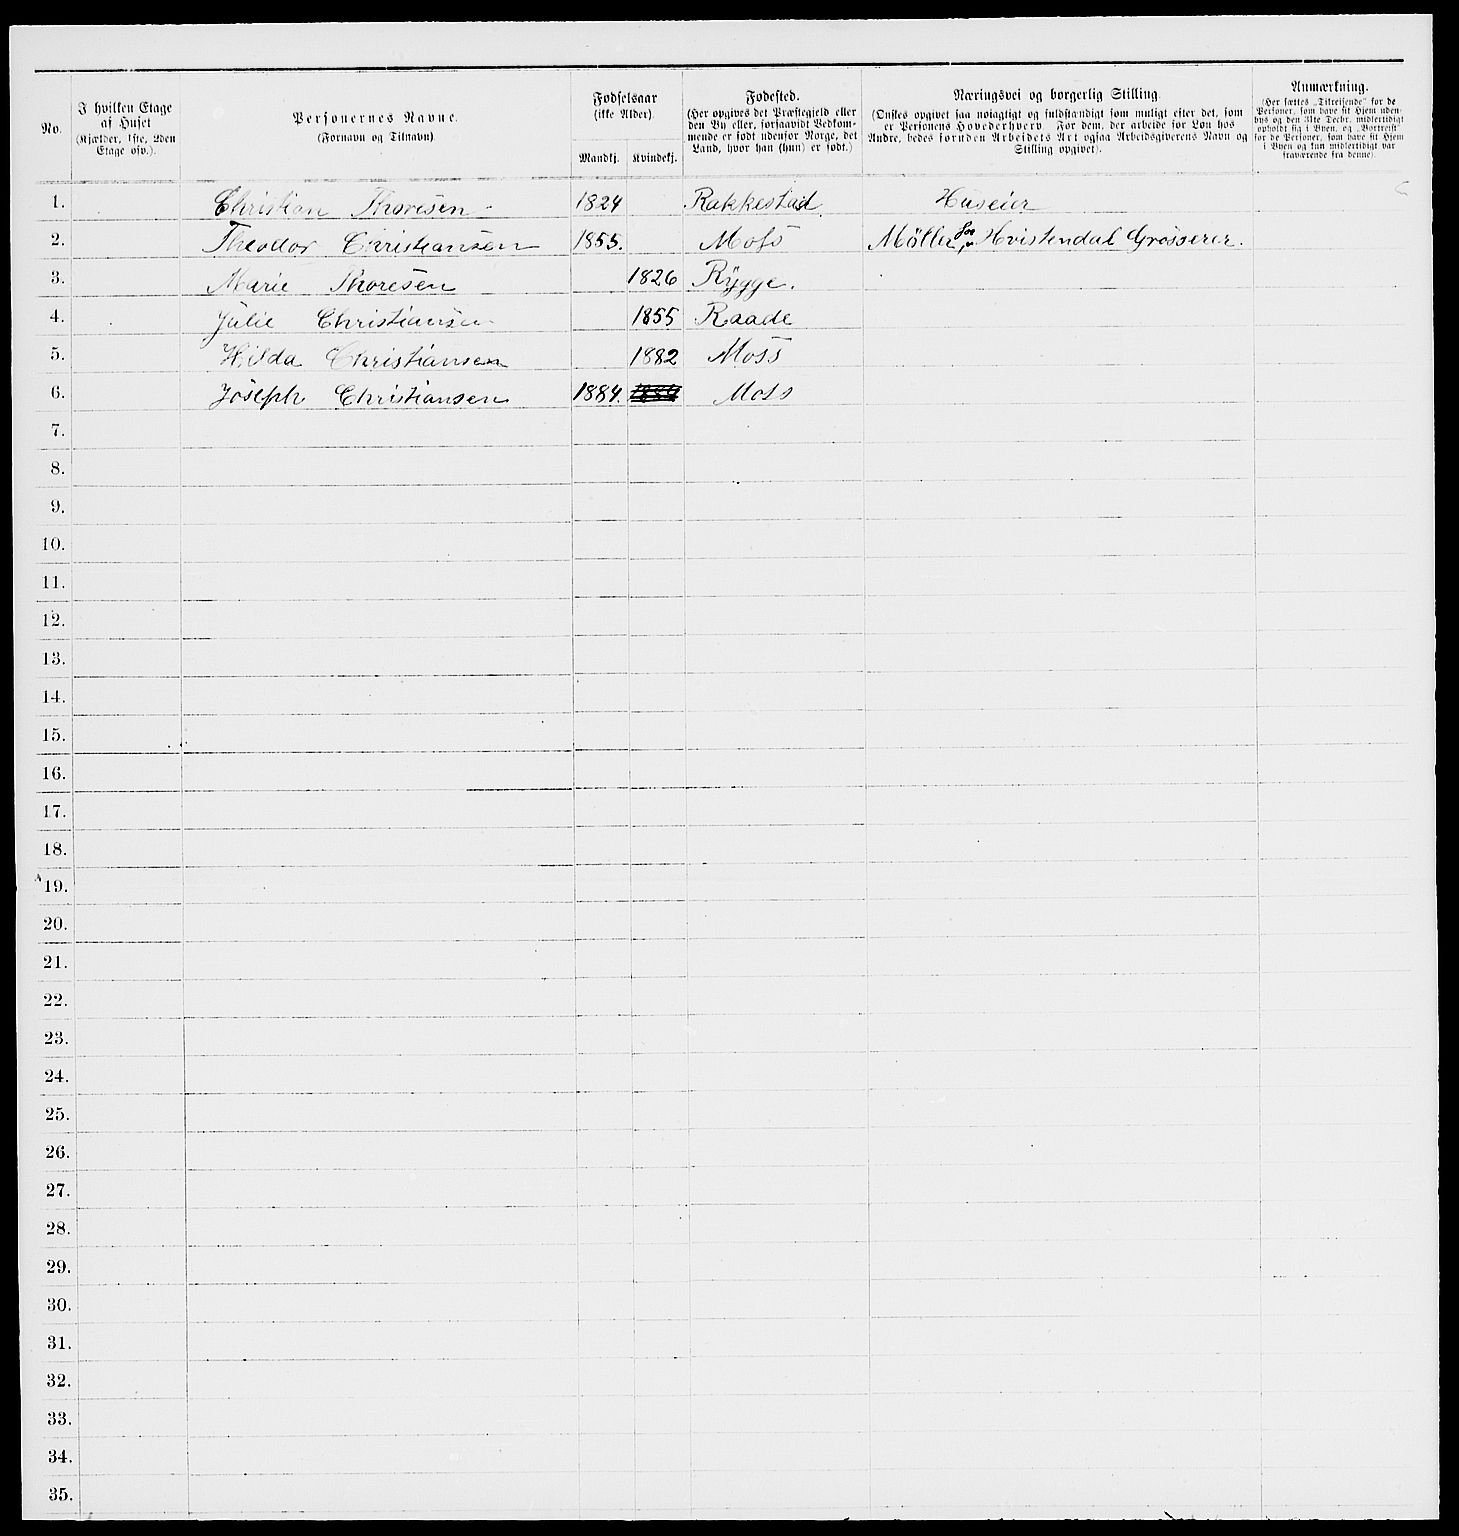 No.
I hvilken Etage
af Huset
(Kjælder, 1ste, 2den
Etage osv.).
Personernes Navne.
(Fornavn og Tilnavn).
Fødselsaar
(ikke Alder).
Mandkj. Kvindekj.
Fødested.
(Her opgives det Præstegjeld eller
den By eller, forsaavidt Vedkom-
mende er født udenfor Norge, det
Land, hvor han (hun) er født.)
Næringsvei og borgerlig Stilling.
(Ønskes opgivet saa nøiagtigt og fuldstændigt som muligt efter det, som
er Personens Hovederhverv. For dem, der arbeide for Løn hos
Andre, bedes foruden Arbeidets Art ogsaa Arbeidsgiverens Navn og
Stilling opgivet).
Anmærkning.
(Her sættes „Tilreisende“ for de
Personer, som have sit Hjem uden-
bys og den 31te Decbr. midlertidigt
opholdt sig i Byen, og „Bortreist“
for de Personer, som have sit Hjem
i Byen og kun midlertidigt var
fraværende fra denne).
1. Christian Thoresen 1824 Rakkestad. Huseier
2. Theodor Christiansen 1855. Moss Möller for Hvistendal Grosserer.
3. Marie Thoresen 1826 Rygge.
4. Julie Christiansen 1855 Raade
5. Hilda Christiansen 1882 Moss
6. Joseph Christiansen 1884. 1884 Moss
7.
8.
9.
10.
11.
12.
13.
14.
15.
16.
17.
18.
19.
20.
21.
22.
23.
24.
25.
26.
27.
28.
29.
30.
31.
32.
33.
34.
35.